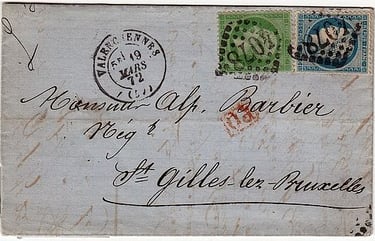 VALENCIENNES
19
MARS
72
4078
4078
Monsieur Alp. Barbier
Nég^t
St Gilles-lez-Bruxelles